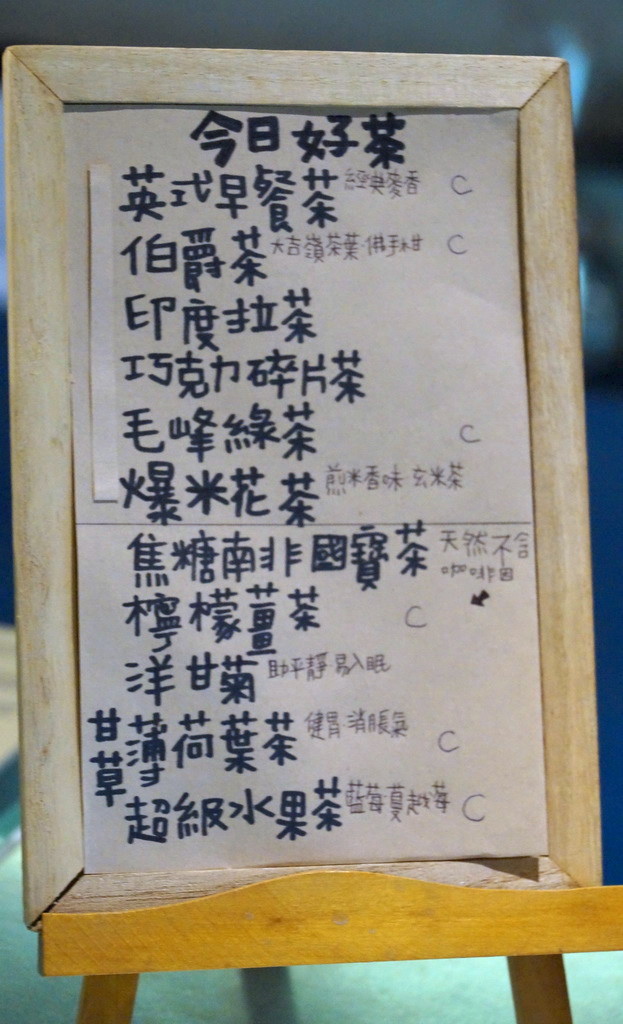 今日好茶
英式早餐茶 經典麥香 C
伯爵茶 大吉嶺茶葉·佛手柑 C
印度拉茶
巧克力碎片茶
毛峰綠茶 C
爆米花茶 煎米香味 玄米茶
焦糖南非國寶茶 天然不含
咖啡因
檸檬薑茶 C
洋甘菊 助平靜·易入眠
甘草薄荷葉茶 健胃·消脹氣 C
超級水果茶 藍莓蔓越莓 C